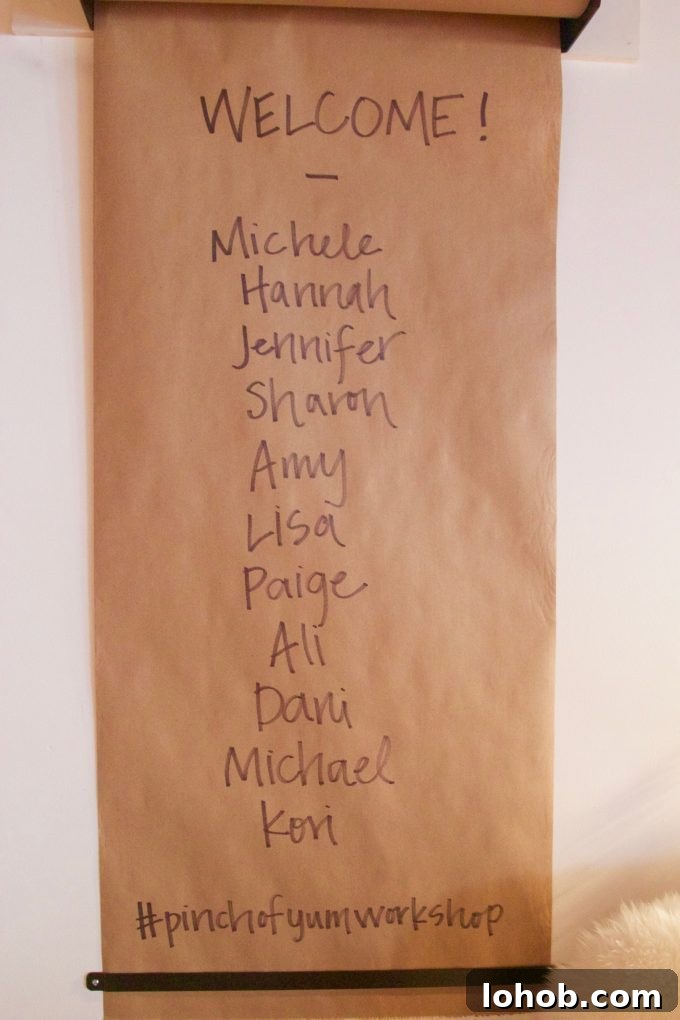 WELCOME!
—
Michele
Hannah
Jennifer
Sharon
Amy
Lisa
Paige
Ali
Dani
Michael
Kori
#pinchofyumworkshop
lohob.com